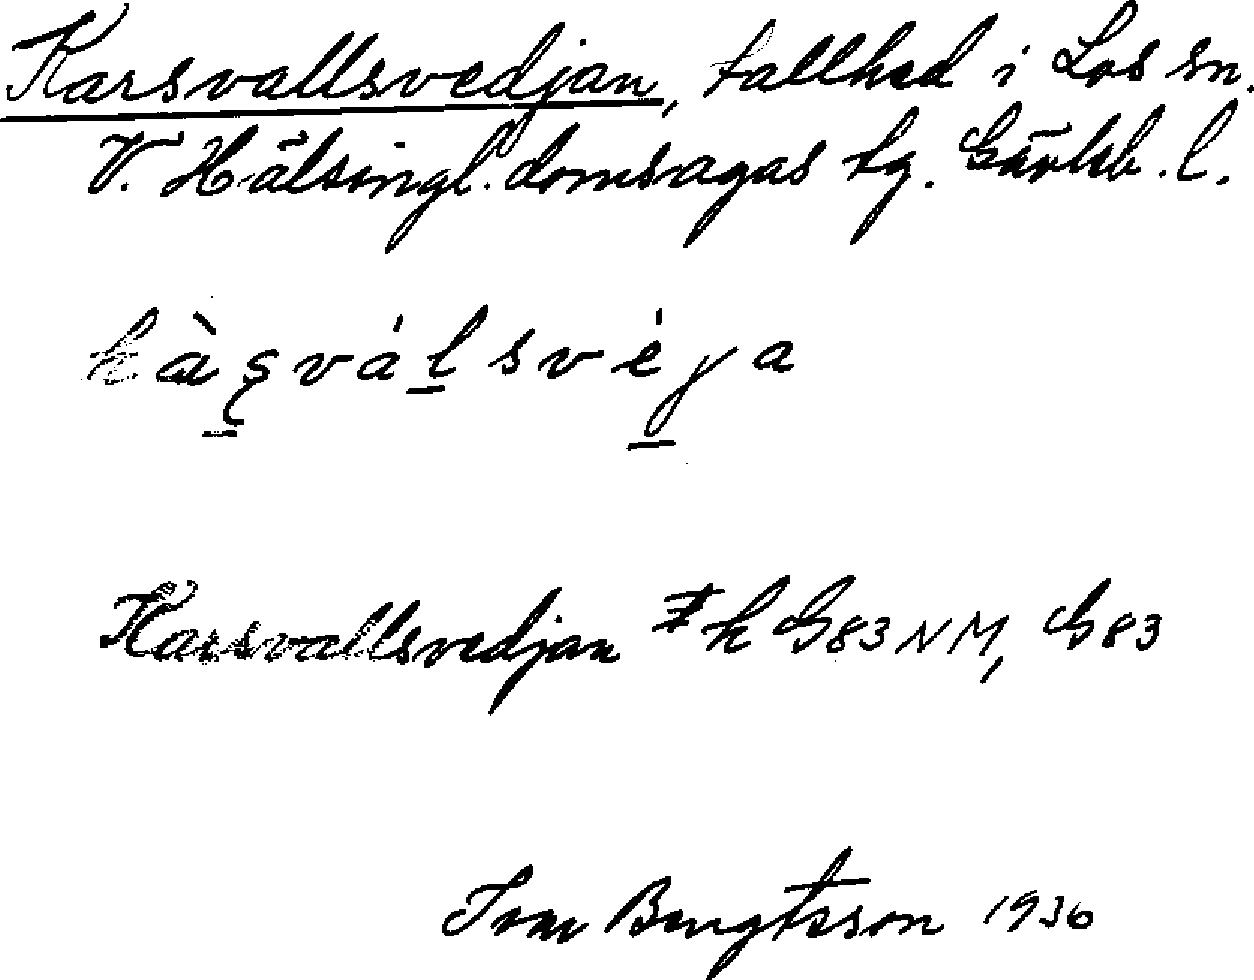 Karsvallsvedjan, tallhed i Los sn.
V. Hälsingl. domsagas tg. Gävleb. l.
kàʂvál̠svéɟa
Karsvallsvedjan I h G83NM, G83
Ivar Bengtsson 1936